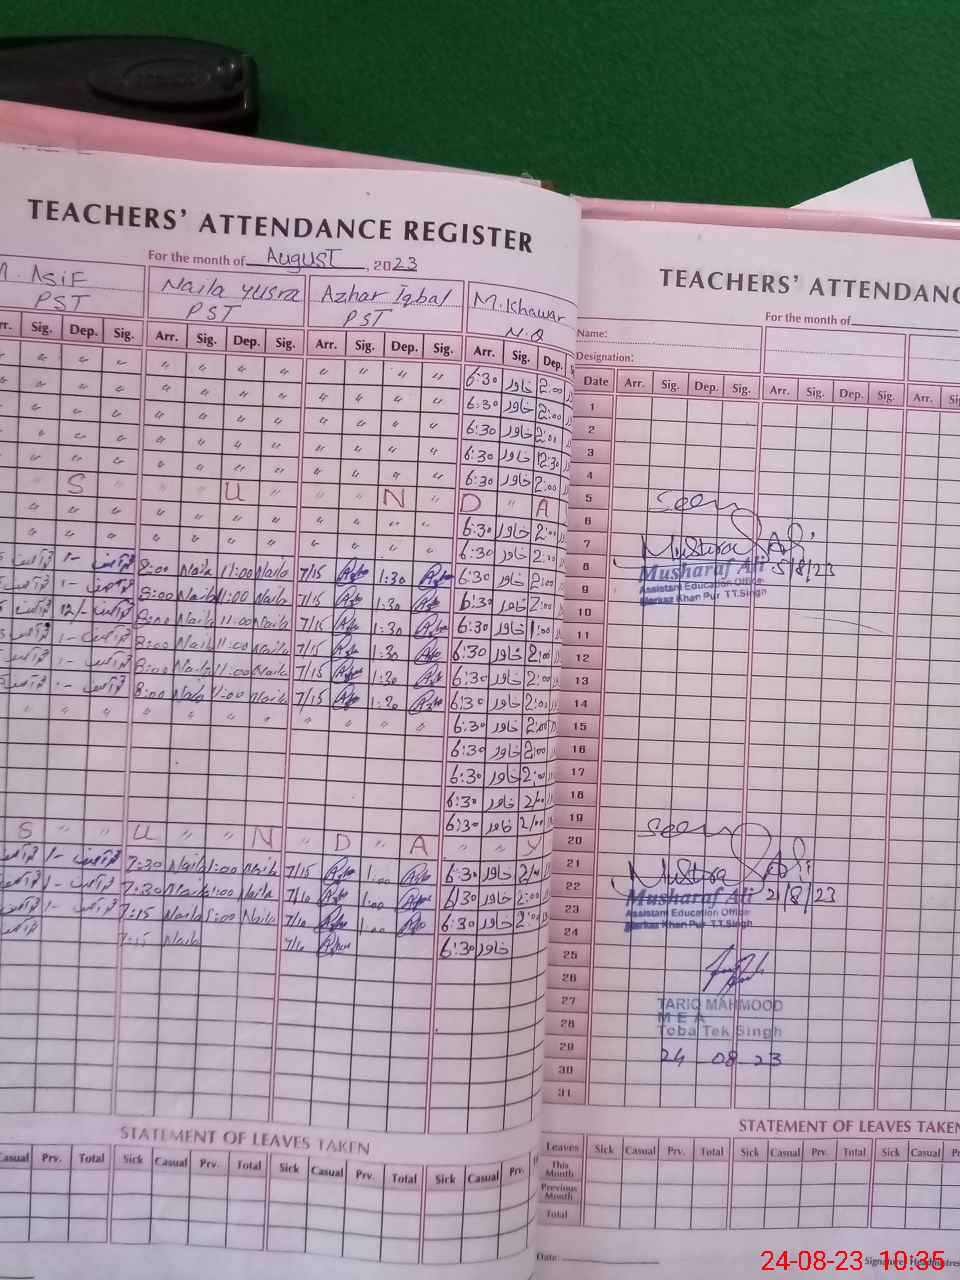 TEACHERS' ATTENDANCE REGISTER
For the month of August, 2023
M. Asif Naila Yusra Azhar Iqbal M. Khawar
PST PST PST N.Q
Sig. Dep. Sig. Arr. Sig. Dep. Sig. Arr. Sig. Dep. Sig. Arr. Sig. Dep.
" " " " " " " " " " " 6:30 خاور 2:00
" " " " " " " " " " " 6:30 خاور 2:00
" " " " " " " " " " " 6:30 خاور 2:00
" " " " " " " " " " " 6:30 خاور 12:30
" " " " " " " " " " " 6:30 خاور 2:00
S " " U " " " N " D " A
" " " " " " " " " " " 6:30 خاور 2:00
" " " " " " " " " " " 6:30 خاور 2:00
8:00 Naila 11:00 Naila 7/15 1:30 6:30 خاور 2:00
8:00 Naila 11:00 Naila 7/15 1:30 6:30 خاور 2:00
12/- 8:00 Naila 11:00 Naila 7/15 1:30 6:30 خاور 1:00
8:00 Naila 11:00 Naila 7/15 1:30 6:30 خاور 2:00
8:00 Naila 11:00 Naila 7/15 1:30 6:30 خاور 2:00
8:00 Naila 11:00 Naila 7/15 1:30 6:30 خاور 2:00
" " " " " " " " " " " 6:30 خاور 2:00
6:30 خاور 2:00
6:30 خاور 2:00
6:30 خاور 2/00
6:30 خاور 2/00
S " " U " " N " D " A " " Y
7:30 Naila 1:00 Naila 7/15 1:00 6:30 خاور 2/00
7:30 Naila 1:00 Naila 7/10 1:00 6:30 خاور 2:00
7:15 Naila 1:00 Naila 7/10 1:00 6:30 خاور 2:00
7:15 Naila 7/10 6:30 خاور
STATEMENT OF LEAVES TAKEN
Casual Prv. Total Sick Casual Prv. Total Sick Casual Prv. Total Sick Casual Prv.
TEACHERS' ATTENDANC
For the month of
Name:
Designation:
Date Arr. Sig. Dep. Sig. Arr. Sig. Dep. Sig. Arr.
1
2
3
4
5
Seen
6
7
8
Musharaf Ali 5/8/23
Assistant Education Officer
9
Markaz Khan Pur T.T.Singh
10
11
12
13
14
15
16
17
18
19
20
Seen
21
22
Musharaf Ali 21/8/23
23
Assistant Education Officer
Markaz Khan Pur T.T.Singh
24
25
26
27
TARIQ MAHMOOD
28
M E A
Toba Tek Singh
29
24-08-23
30
31
STATEMENT OF LEAVES TAKEN
Leaves Sick Casual Prv. Total Sick Casual Prv. Total Sick Casual
This Month
Previous Month
Total
Date
Signature Headmistress
24-08-23 10:35